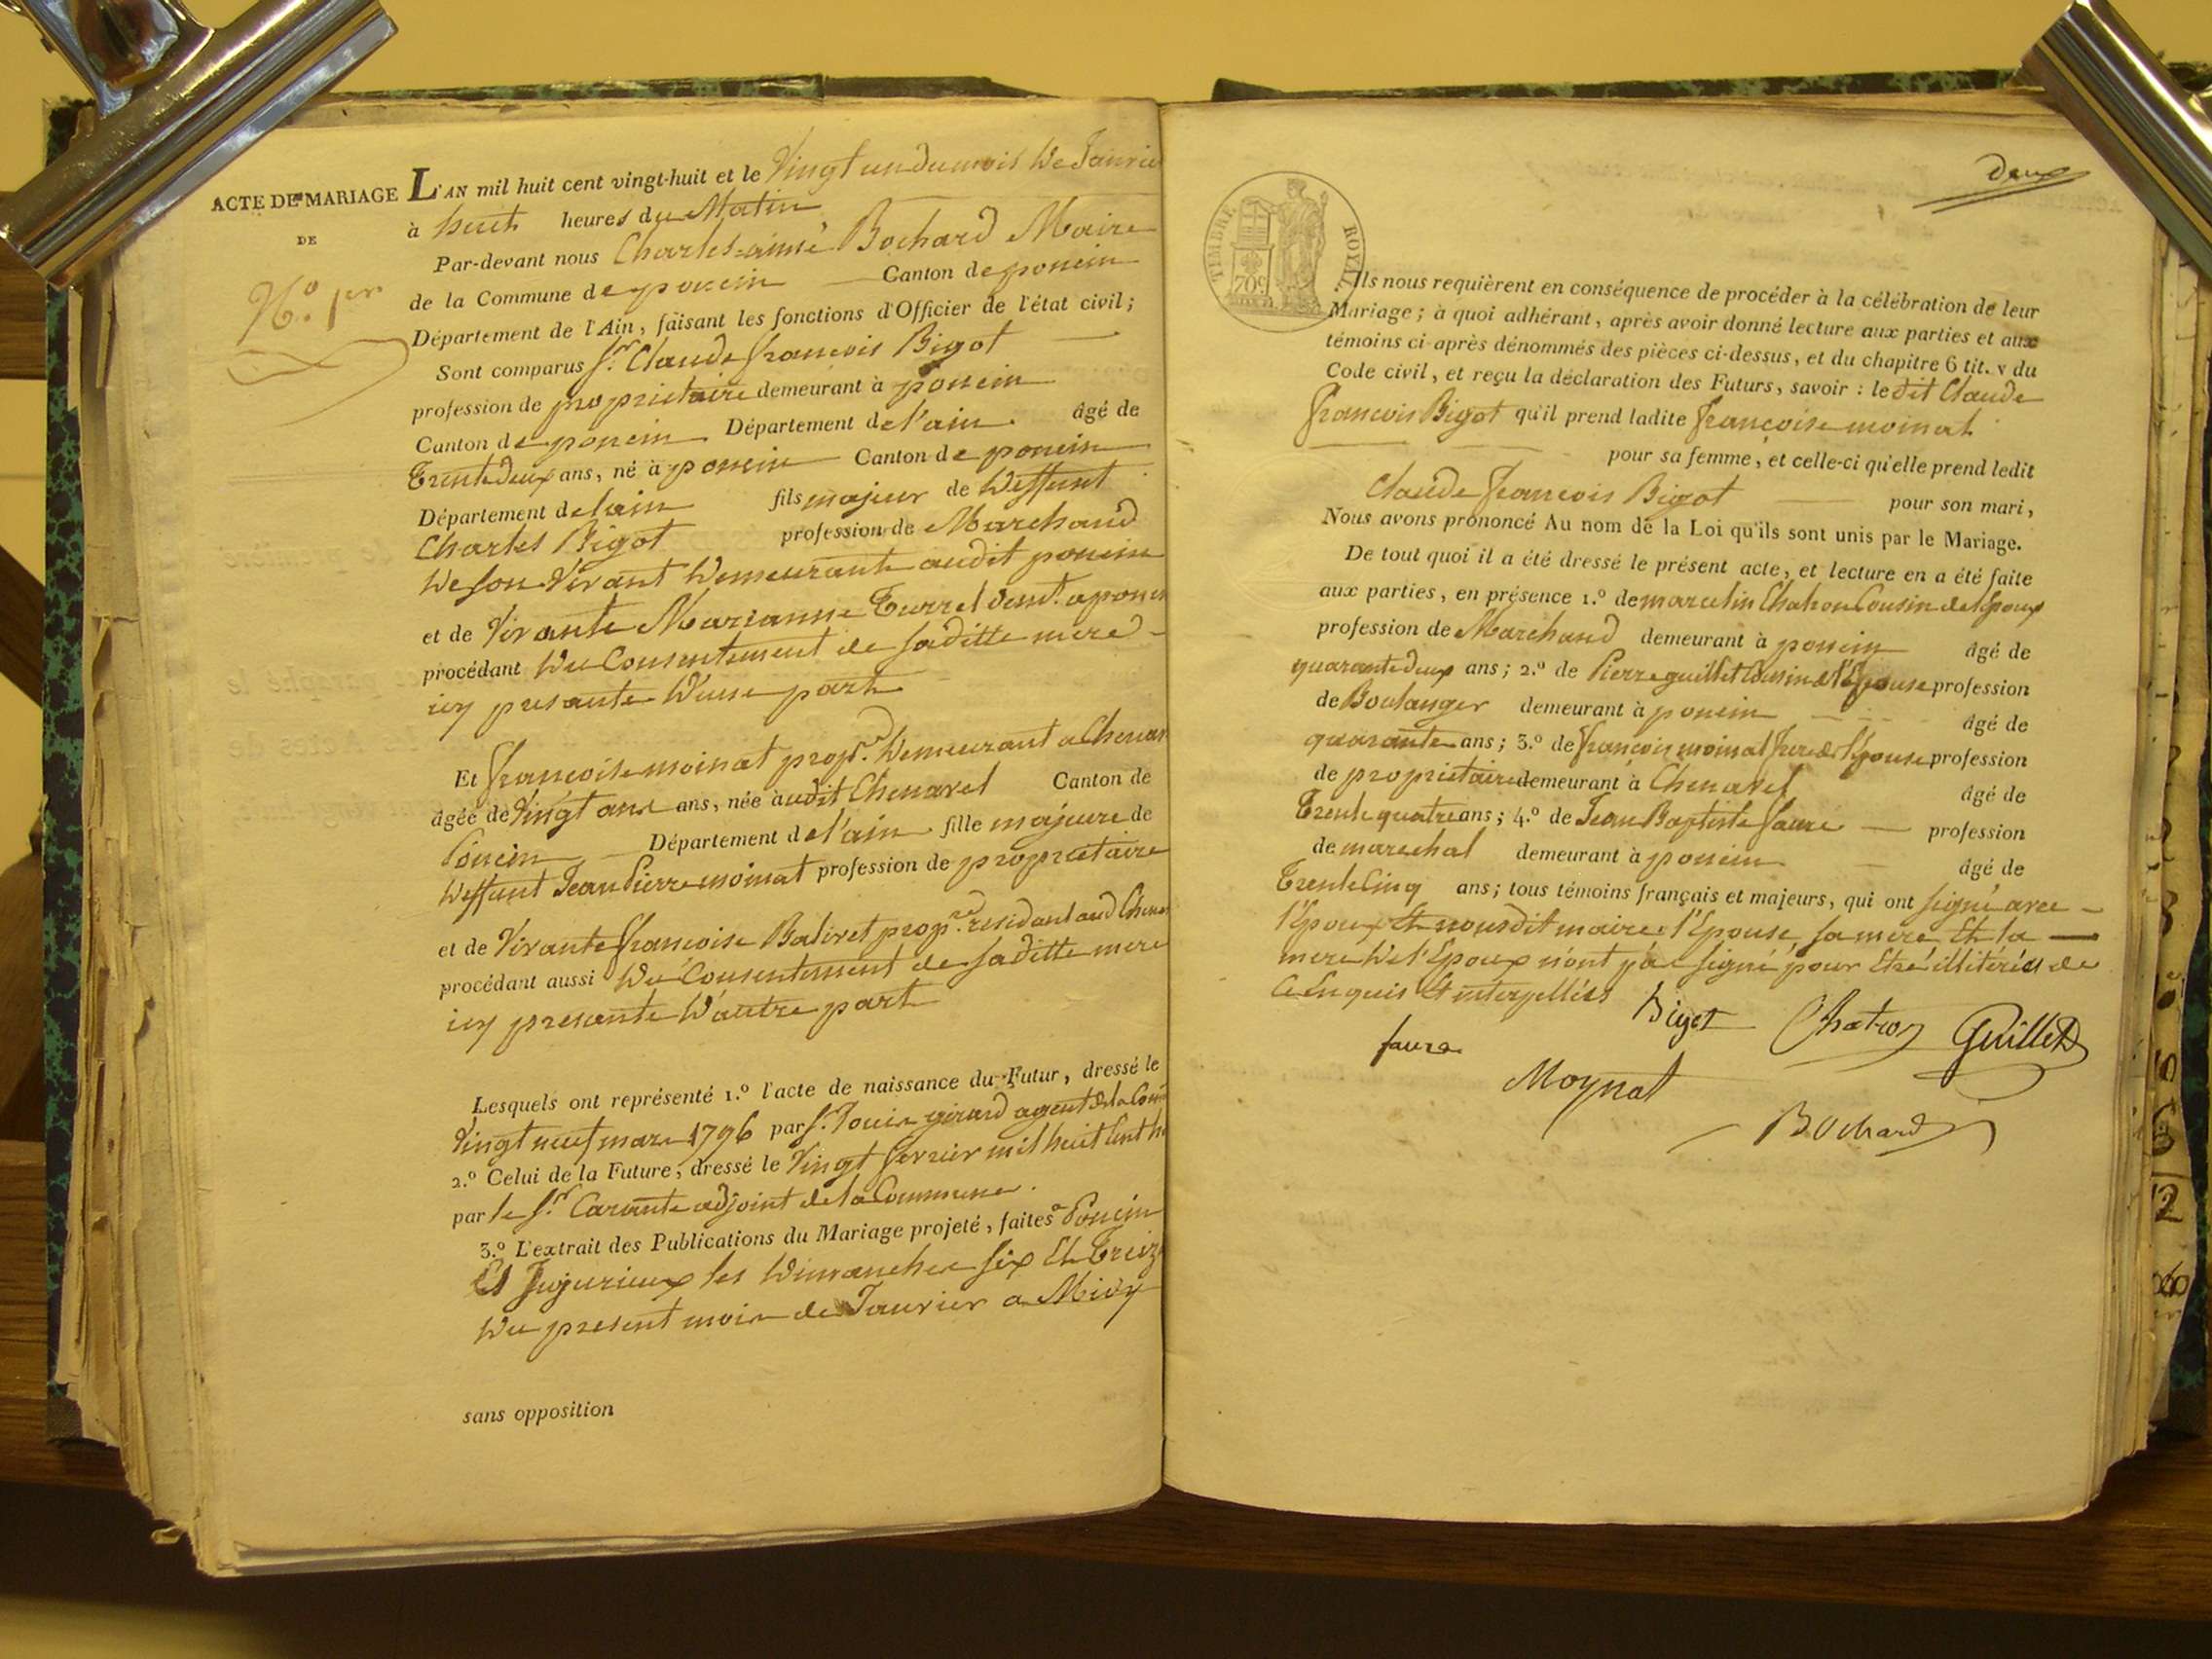 ACTE DE MARIAGE
DE
N.o 1er
L'AN mil huit cent vingt-huit et le Vingt un du mois de Janvie
à huit heures du Matin
Par-devant nous Charles-aimé Bochard Maire
de la Commune de poncin Canton de poncin
Département de l'Ain, faisant les fonctions d'Officier de l'état civil;
Sont comparus Sr. Claude francois Bigot
profession de proprietaire demeurant à poncin
Canton de poncin Département de l'ain âgé de
Trente deux ans, né à poncin Canton de poncin
Département de lain fils majeur de deffunt
Charles Bigot profession de Marchand
de son Vivant demeurante audit poncin
et de Vivante Marianne Turrel demt. a poncin
procédant du Consentement de saditte mere
icy presante d'une part
Et francoise moinat propre. demeurant a Chenav
âgée de Vingt ans ans, née à udit Chenavel Canton de
Poncin Département de l'ain fille majeure de
deffunt Jean Pierre moinat profession de proprietaire
et de Vivante francoise Balivet propre. residant aud Chena
procédant aussi du Consentement de saditte mere
icy presante d'autre part
Lesquels ont représenté 1.o l'acte de naissance du Futur, dressé le
Vingt neuf mars 1796 par Sr. Louis girard agent de la Com
2.o Celui de la Future, dressé le Vingt fevrier mil huit Cent h
par le Sr. adjoint de la Commune.
3.o L'extrait des Publications du Mariage projeté, faites a Poncin
Et Jujurieux les dimanches six Et Treiz
du present mois de Janvier a Midy
sans opposition
deux
TIMBRE ROYAL
70c.
Ils nous requièrent en conséquence de procéder à la célébration de leur
Mariage; à quoi adhérant, après avoir donné lecture aux parties et aux
témoins ci-après dénommés des pièces ci-dessus, et du chapitre 6 tit. v du
Code civil, et reçu la déclaration des Futurs, savoir : le dit Claude
francois Bigot qu'il prend ladite françoise moinat
pour sa femme, et celle-ci qu'elle prend ledit
Claude francois Bigot pour son mari,
Nous avons prononcé Au nom de la Loi qu'ils sont unis par le Mariage.
De tout quoi il a été dressé le présent acte, et lecture en a été faite
aux parties, en présence 1.o de marcelin Chatron Cousin de l'Epoux
profession de Marchand demeurant à poncin âgé de
quarante deux ans; 2.o de Pierre guillet Cousin de l'Epouse profession
de Boulanger demeurant à poncin âgé de
quarante ans; 3.o de francois moinat frere de l'Epouse profession
de proprietaire demeurant à Chenavel âgé de
Trente quatre ans; 4.o de Jean Baptiste faure profession
de marechal demeurant à poncin âgé de
Trente Cinq ans; tous témoins français et majeurs, qui ont signé avec
l'Epoux Et nousdit maire. l'Epouse, sa mere Et la
mere de l'Epoux n'ont pas signé pour Etre illitérés de
Ce Enquis Et interpellées
Bigot Chatron Guillet
faure
Moynat
Bochard